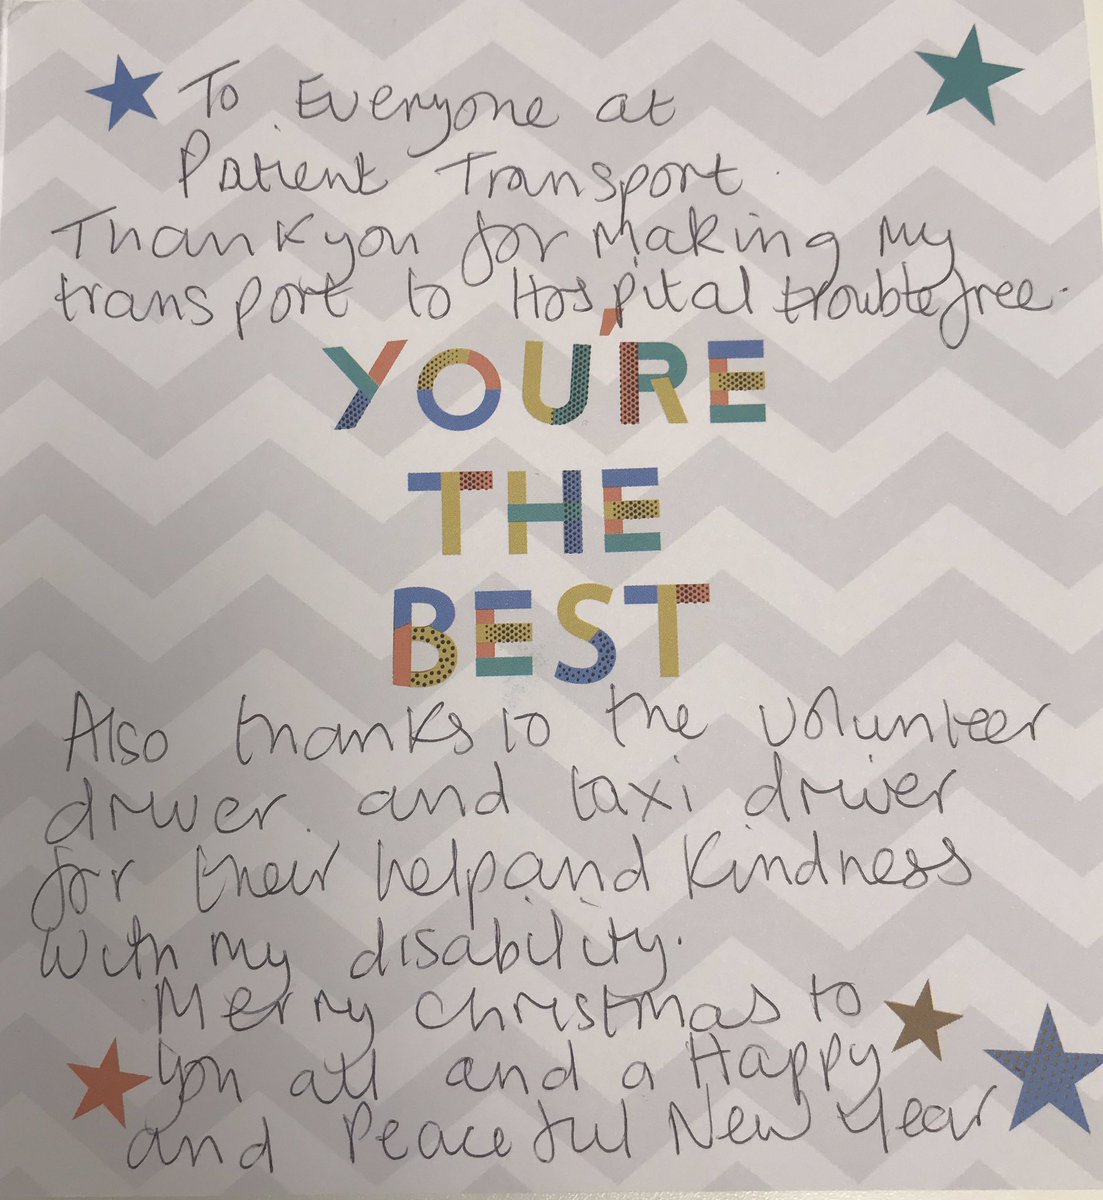 To Everyone at
Patient Transport.
Thankyou for making my
transport to Hospital trouble free.
YOU'RE
THE
BEST
Also thanks to the volunteer
driver. and taxi driver
for their help and kindness
with my disability.
Merry Christmas to
you all and a Happy
and Peaceful New Year